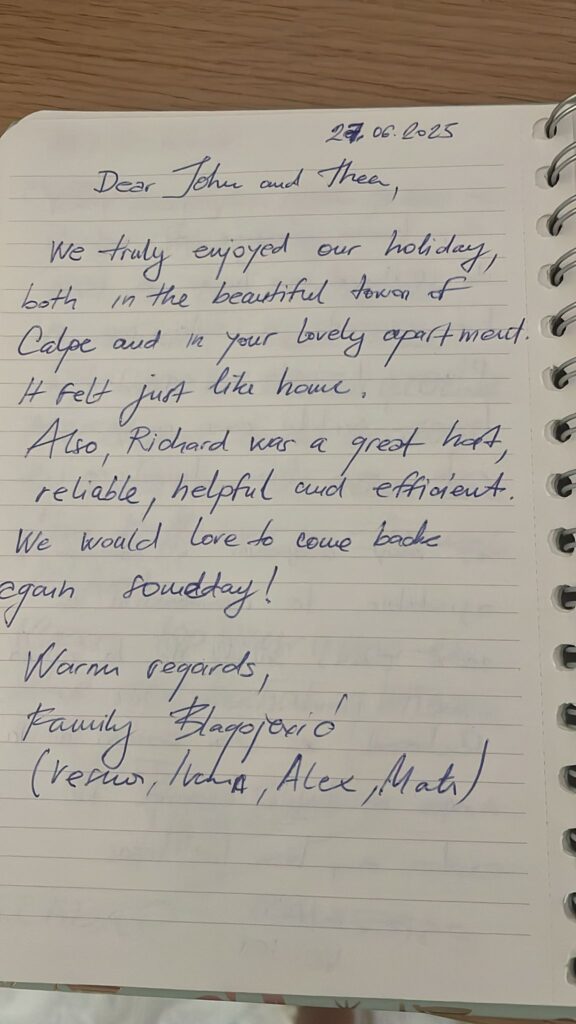 27.06.2025
Dear John and Thea,
We truly enjoyed our holiday,
both in the beautiful town of
Calpe and in your lovely apartment.
It felt just like home.
Also, Richard was a great host,
reliable, helpful and efficient.
We would love to come back
again someday!
Warm regards,
Family Blagojević
(Vesna, Ivana, Alex, )